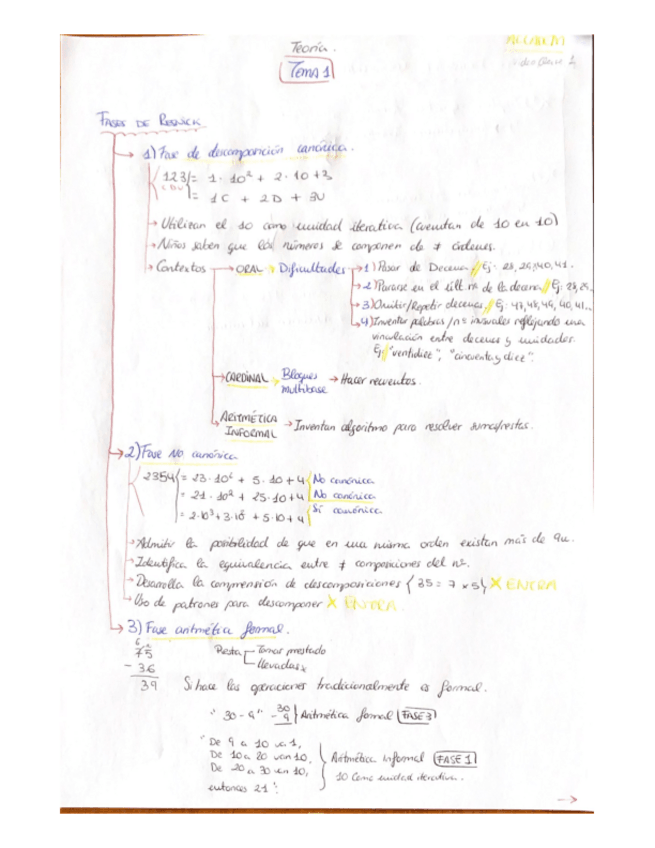 Teoría.
Tema 1
FASES DE RESNICK
1) Fase de descomposición canónica.
123 = 1 · 10² + 2 · 10 + 3
CDU = 1C + 2D + 3U
→ Utilizan el 10 como unidad iterativa (cuentan de 10 en 10)
→ Niños saben que los números se componen de ≠ órdenes.
→ Contextos → ORAL → Dificultades → 1) Pasar de Decena // Ej: 28, 29, 40, 41.
→ 2) Pararse en el últ. nº de la decena // Ej: 28, 29...
→ 3) Omitir/Repetir decenas // Ej: 47, 48, 49, 40, 41...
→ 4) Inventar palabras / nº inusuales reflejando una
vinculación entre decenas y unidades.
Ej: // "ventidiez", "cincuenta y diez".
→ CARDINAL → Bloques multibase → Hacer recuentos.
→ ARITMÉTICA INFORMAL → Inventan algoritmo para resolver sumas/restas.
2) Fase No canónica
2354 = 23 · 10² + 5 · 10 + 4 No canónica
= 21 · 10² + 25 · 10 + 4 No canónica
= 2 · 10³ + 3 · 10² + 5 · 10 + 4 Sí canónica
→ Admitir la posibilidad de que en una misma orden existan más de 9u.
→ Identifica la equivalencia entre ≠ composiciones del nº.
→ Desarrolla la comprensión de descomposiciones { 35 = 7 x 5 } X ENTRA
→ Uso de patrones para descomponer X ENTRA.
3) Fase aritmética formal.
75 Resta Tomar prestado
- 36 llevadas
39 Si hace las operaciones tradicionalmente es formal.
"30 - 9" 30 - 9 } Aritmética formal FASE 3
"De 9 a 10 va 1,
De 10 a 20 van 10, Aritmética informal FASE 1
De 20 a 30 van 10, 10 como unidad iterativa.
entonces 21".
→